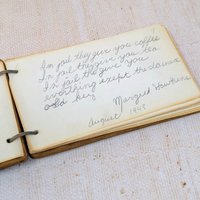 In jail they give you coffee
In jail they give you tea
In jail the give you
everything exept the
old key
Margret
August 1943